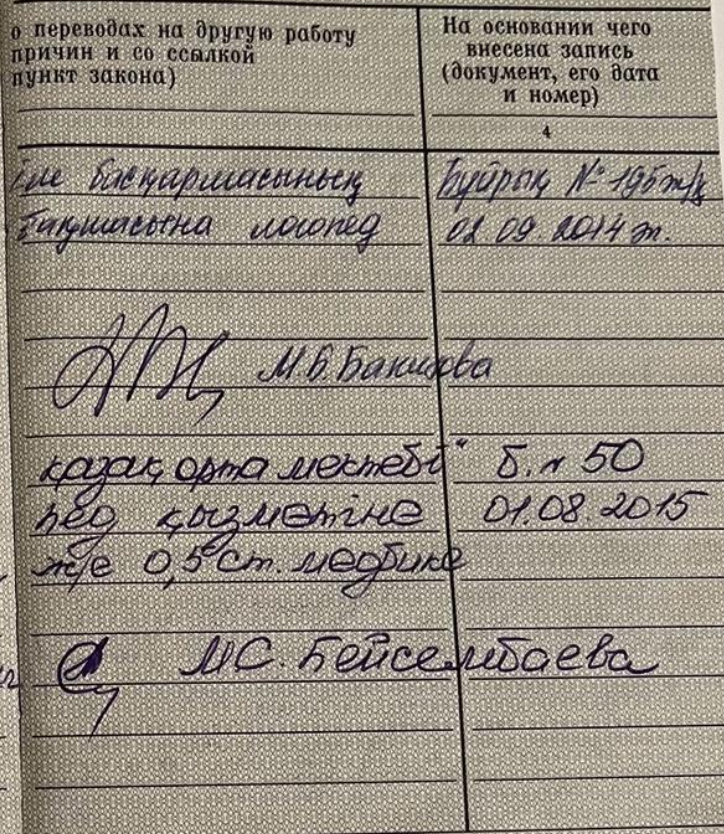 о переводах на другую работу
причин и со ссылкой
пункт закона)
На основании чего
внесена запись
(документ, его дата
и номер)
4
басқармасының
логопед
Бұйрық № 195 ж/қ
02.09.2014 ж.
М.Б.
қазақ орта мектебі"
пед қызметіне
ж/е 0,5 ст. медбике
б. н 50
01.08.2015
М.С. Бейсембаева